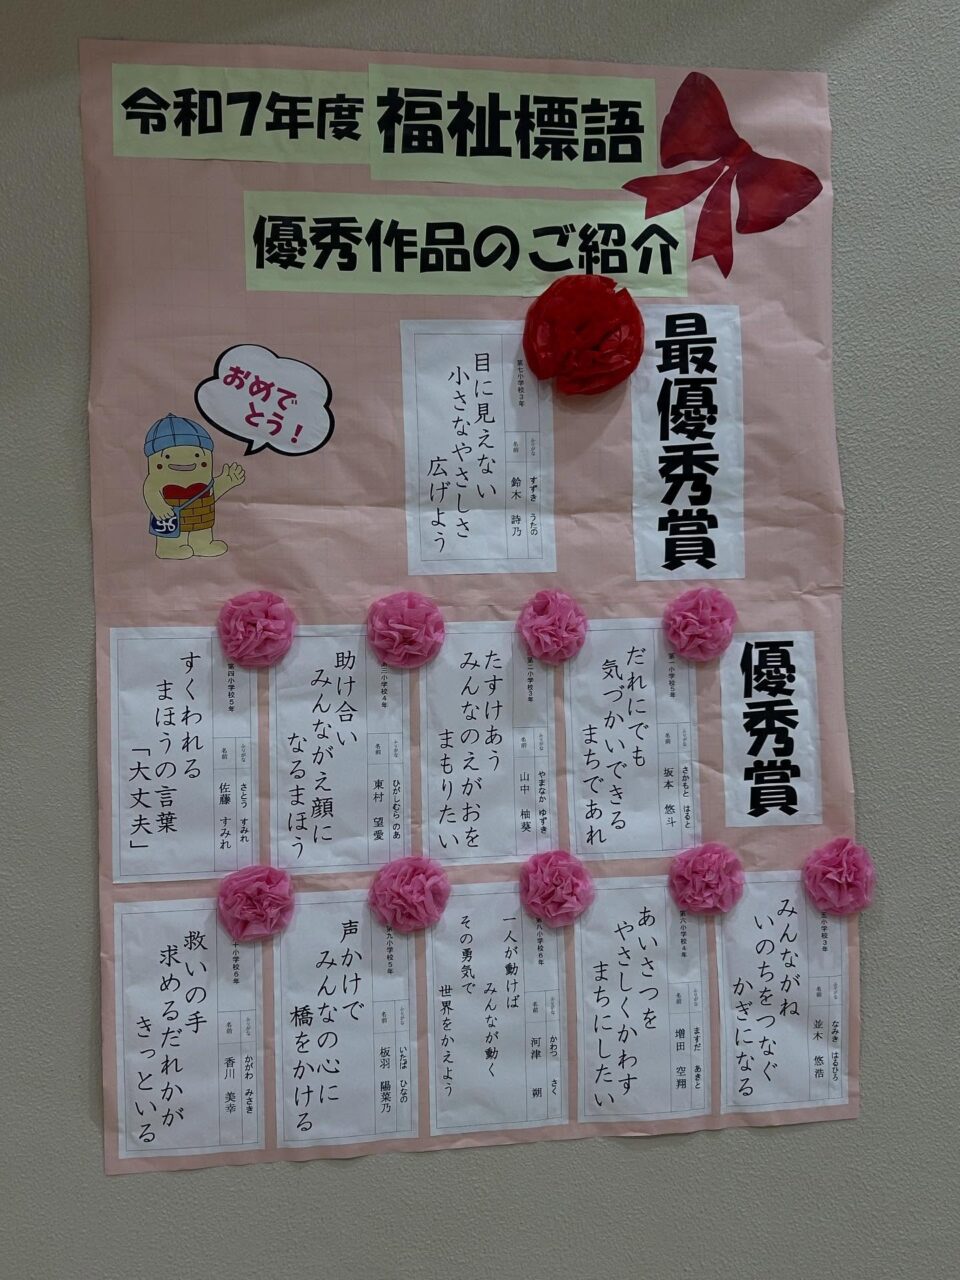 令和7年度 福祉標語
優秀作品のご紹介
おめで
とう!
最優秀賞
第七小学校3年
ふりがな すずき うたの
名前 鈴木 詩乃
目に見えない
小さなやさしさ
広げよう
優秀賞
第一小学校5年
ふりがな さかもと はると
名前 坂本 悠斗
だれにでも
気づかいできる
まちであれ
第二小学校3年
ふりがな やまなか ゆずき
名前 山中 柚葵
たすけあう
みんなのえがおを
まもりたい
第三小学校4年
ふりがな ひがしむら のあ
名前 東村 望愛
助け合い
みんながえ顔に
なるまほう
第四小学校5年
ふりがな さとう すみれ
名前 佐藤 すみれ
すくわれる
まほうの言葉
「大丈夫」
五小学校3年
ふりがな なみき はるひろ
名前 並木 悠浩
みんながね
いのちをつなぐ
かぎになる
第六小学校4年
ふりがな ますだ あきと
名前 増田 空翔
あいさつを
やさしくかわす
まちにしたい
第八小学校6年
ふりがな かわつ さく
名前 河津 朔
一人が動けば
みんなが動く
その勇気で
世界をかえよう
第九小学校5年
ふりがな いたば ひなの
名前 板羽 陽菜乃
声かけで
みんなの心に
橋をかける
十小学校6年
ふりがな かがわ みさき
名前 香川 美幸
救いの手
求めるだれかが
きっといる